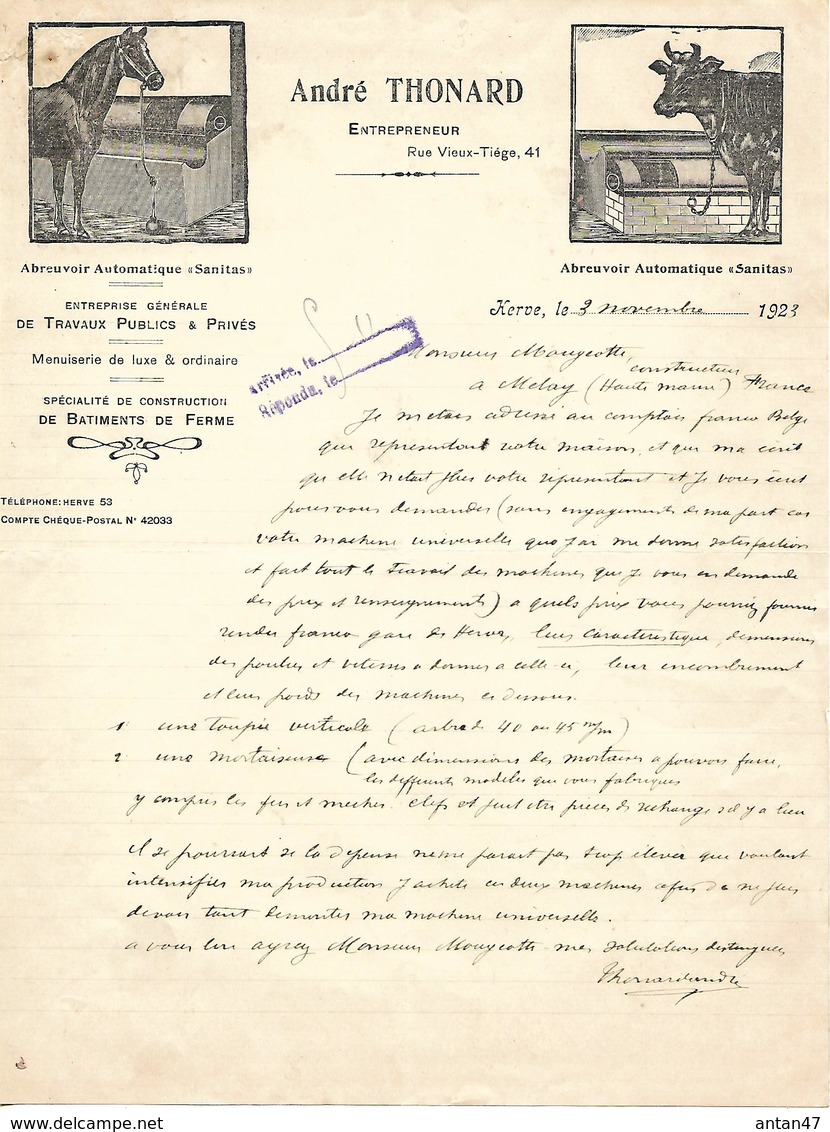 André THONARD
ENTREPRENEUR
Rue Vieux-Tiége, 41
Abreuvoir Automatique «Sanitas»
Abreuvoir Automatique «Sanitas»
ENTREPRISE GÉNÉRALE
DE TRAVAUX PUBLICS & PRIVÉS
Menuiserie de luxe & ordinaire
SPÉCIALITÉ DE CONSTRUCTION
DE BATIMENTS DE FERME
TÉLÉPHONE: HERVE 53
COMPTE CHÉQUE-POSTAL N° 42033
Arrivée, le
Répondu, le
Herve, le 3 novembre 1923
Monsieur Mougeotte,
constructeur
a Melay (Haute marne) France
Je metais adressé au comptoir franco Belge
que representant votre maison, et que ma écrit
qu elle netait plus votre représentant et Je vous écrit
pour vous demander (sans engagements de ma part car
votre machine universelle que Jai me donne satisfaction
et fait tout le travail des machines que Je vous en demande
des prix et renseignements) a quels prix vous pourriez fournir
rendu franco gare de Herve, leur caracteristique, dimensions
des poulies et vitesses a donner a celle-ci, leur encombrement
et leur poids des machines ci dessous.
1° une toupie verticale (arbre de 40 ou 45 m/m)
2 une mortaiseuse (avec dimensions des mortaises a pouvoir faire,
les differents modeles que vous fabriquez
y compris les fers et meches. clefs et peut etre pieces de rechange sil y a lieu
il se pourrait se la depense ne me parait pas trop elever que voulant
intensifier ma production J achete ces deux machines afin de ne pas
devoir tant demonter ma machine universelle.
a vous lire agreez Monsieur Mougeotte mes salutations distinguees
Thonard andré
antan47